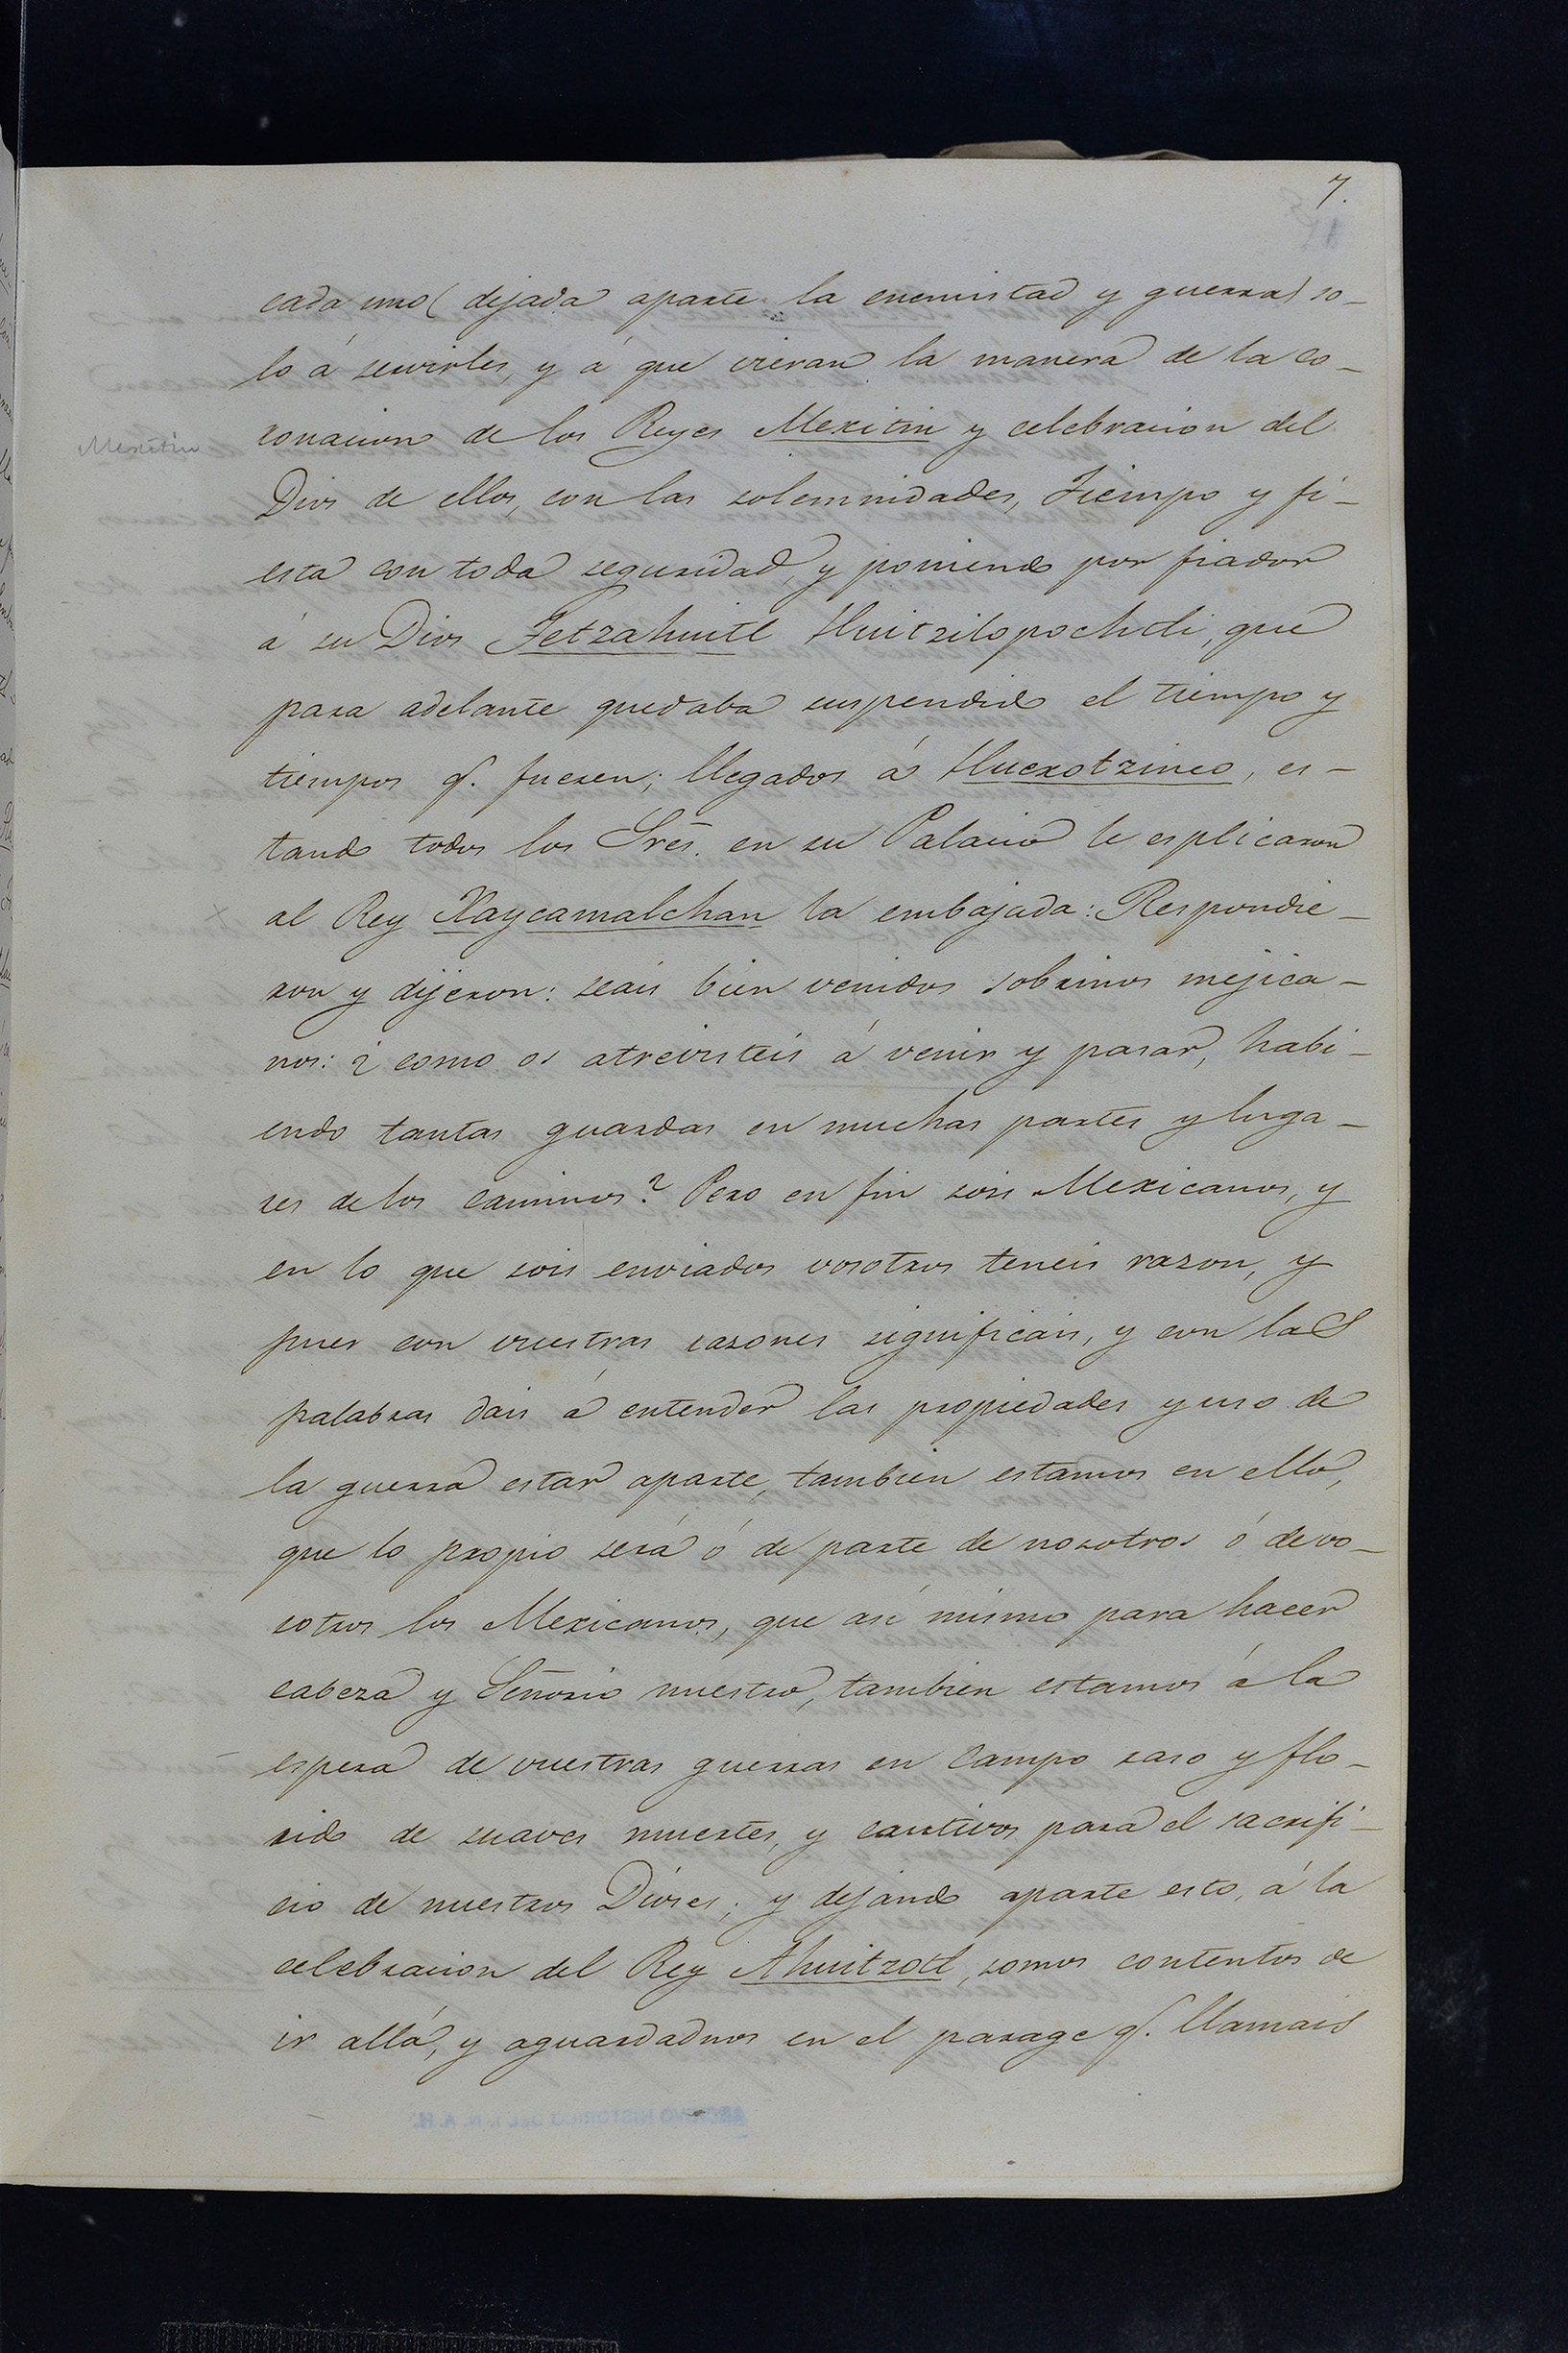 7.
cada uno (dejada aparte la enemistad y guerra) so-
lo á servirles, y á que vieran la manera de la co-
ronacion de los Reyes Mexitin y celebracion del
Mexitin
Dios de ellos, con las solemnidades, Tiempo y fi-
esta con toda seguridad, y poniendo por fiador
á su Dios Tetzahuitl Huitzilopochtli, que
para adelante quedaba suspendido el tiempo y
tiempos q. fuesen; llegados á Huexotzinco, es-
tando todos los Sres. en su Palacio le esplicaron
al Rey Xaycamalchan la embajada: Respondie-
ron y dijeron: seais bien venidos sobrinos mejica-
nos: ¿como os atrevisteis á venir y pasar, habi-
endo tantas guardas en muchas partes y luga-
res de los caminos? Pero en fin sois Mexicanos, y
en lo que sois enviados vosotros teneis razon, y
pues con vuestras razones significais, y con las
palabras dais á entender las propiedades y uso de
la guerra estar aparte, tambien estamos en ello,
que lo propio será ó de parte de nosotros ó de vo-
sotros los Mexicanos, que asi mismo para hacer
cabeza y Señorio nuestro, tambien estamos á la
espera de vuestras guerras en campo raso y flo-
rido de suaves muertes, y cautivos para el sacrifi-
cio de nuestros Dioses; y dejando aparte esto, á la
celebracion del Rey Ahuitzotl, somos contentos de
ir allá, y aguardadnos en el parage q. llamais
ARCHIVO HISTORICO DEL I. N. A. H.